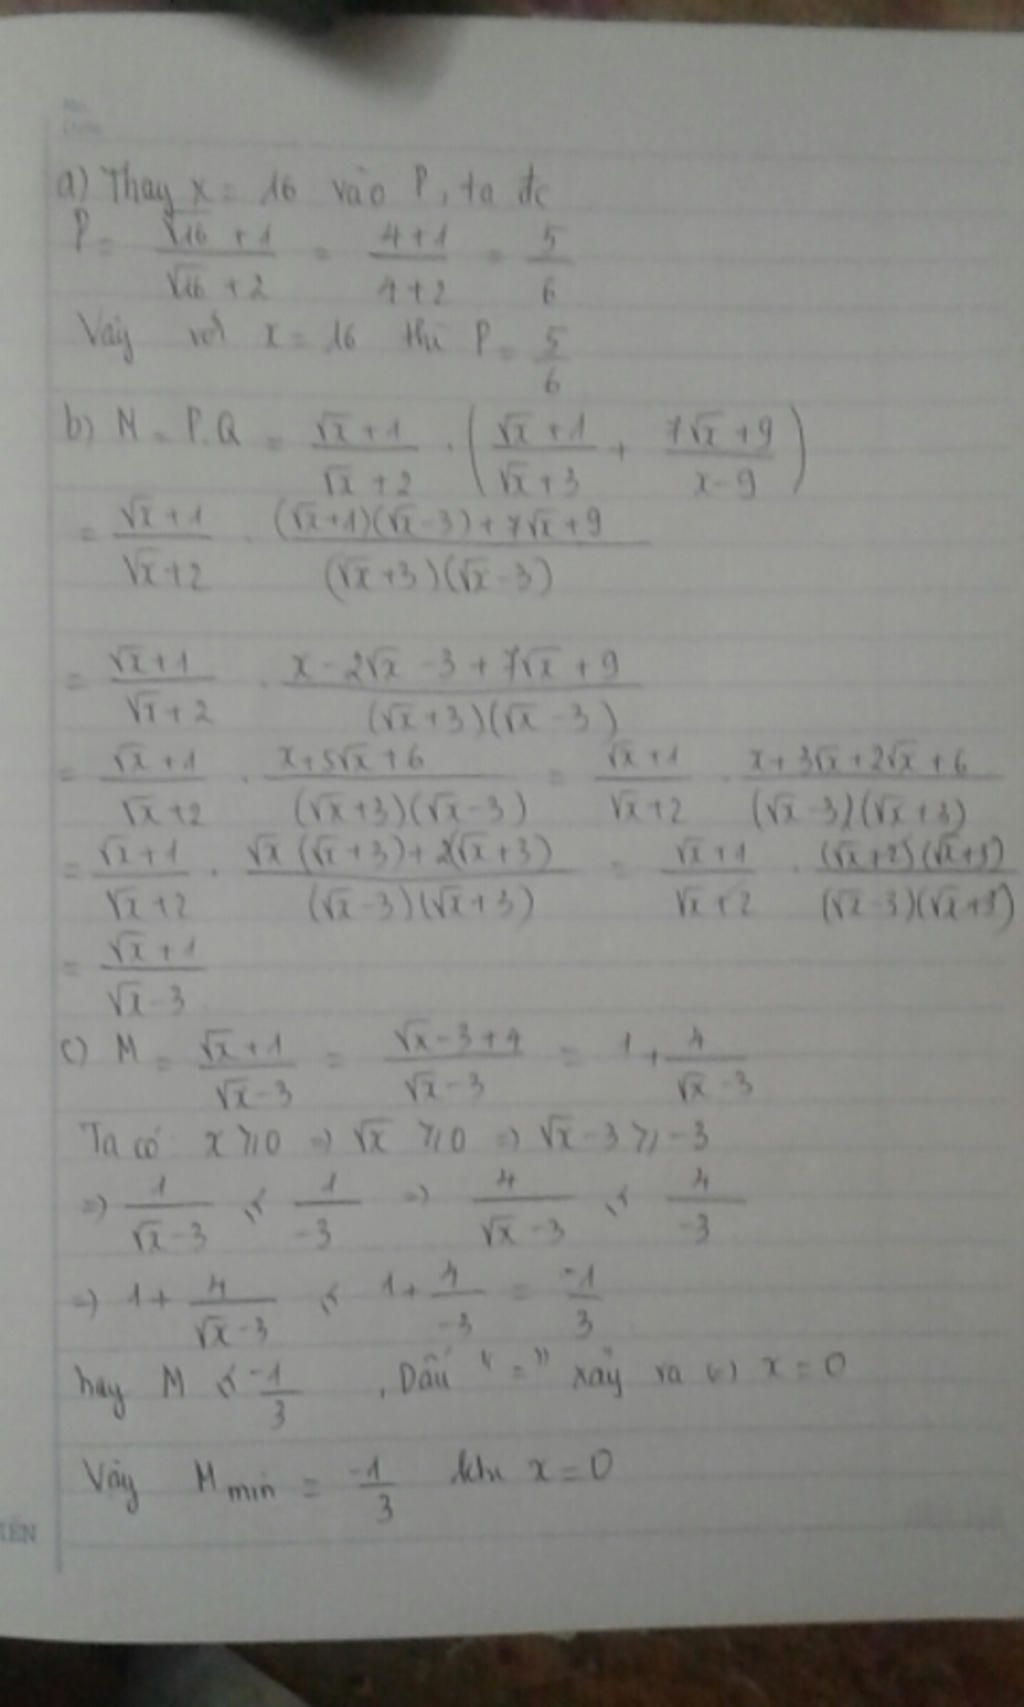 a) Thay x = 16 vào P, ta đc
P = (√16 + 1)/(√16 + 2) = (4+1)/(4+2) = 5/6
Vậy với x = 16 thì P = 5/6
b) M = P.Q = (√x + 1)/(√x + 2) . ((√x + 1)/(√x + 3) + (7√x + 9)/(x - 9))
= (√x + 1)/(√x + 2) . ((√x+1)(√x-3) + 7√x + 9)/((√x+3)(√x-3))
= (√x + 1)/(√x + 2) . (x - 2√x - 3 + 7√x + 9)/((√x+3)(√x-3))
= (√x + 1)/(√x + 2) . (x + 5√x + 6)/((√x+3)(√x-3)) = (√x + 1)/(√x + 2) . (x + 3√x + 2√x + 6)/((√x-3)(√x+3))
= (√x + 1)/(√x + 2) . (√x(√x+3) + 2(√x+3))/((√x-3)(√x+3)) = (√x + 1)/(√x + 2) . ((√x+2)(√x+3))/((√x-3)(√x+3))
= (√x + 1)/(√x - 3)
c) M = (√x + 1)/(√x - 3) = (√x - 3 + 4)/(√x - 3) = 1 + 4/(√x - 3)
Ta có x ⩾ 0 => √x ⩾ 0 => √x - 3 ⩾ -3
=> 1/(√x - 3) ⩽ 1/-3 => 4/(√x - 3) ⩽ 4/-3
=> 1 + 4/(√x - 3) ⩽ 1 + 4/-3 = -1/3
hay M ⩽ -1/3 , Dấu "=" xảy ra (=) x = 0
Vậy M min = -1/3 khi x = 0